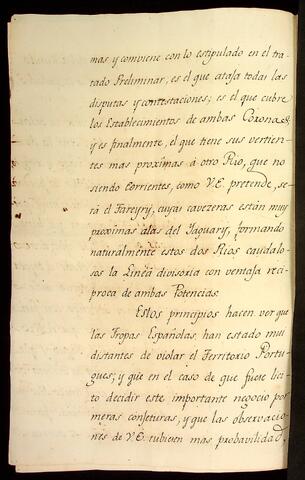 mas y combiene con lo estipulado en el tra-
tado Preliminar, es el que ataja todas las
disputas y contestaciones; es el que cubre
los Establecimientos de ambas Coronas,
y es finalmente, el que tiene sus vertien-
tes mas proximas à otro Rio, que no
siendo Corrientes, como V.E. pretende, se-
rá el Fareyry, cuyas cavezeras están muy
proximas alas del Yaguary, formando
naturalmente estos dos Rios caudalo-
sos la Linea divisoria con ventaja reci-
proca de ambas Potencias.
Estos principios hacen ver que
las Tropas Españolas, han estado mui
distantes de violar el Territorio Portu-
gues; y que en el caso de que fuese lici-
to decidir este importante negocio por
meras conjeturas, y que las observacio-
nes de V.E. tubiesen mas probavilidad,